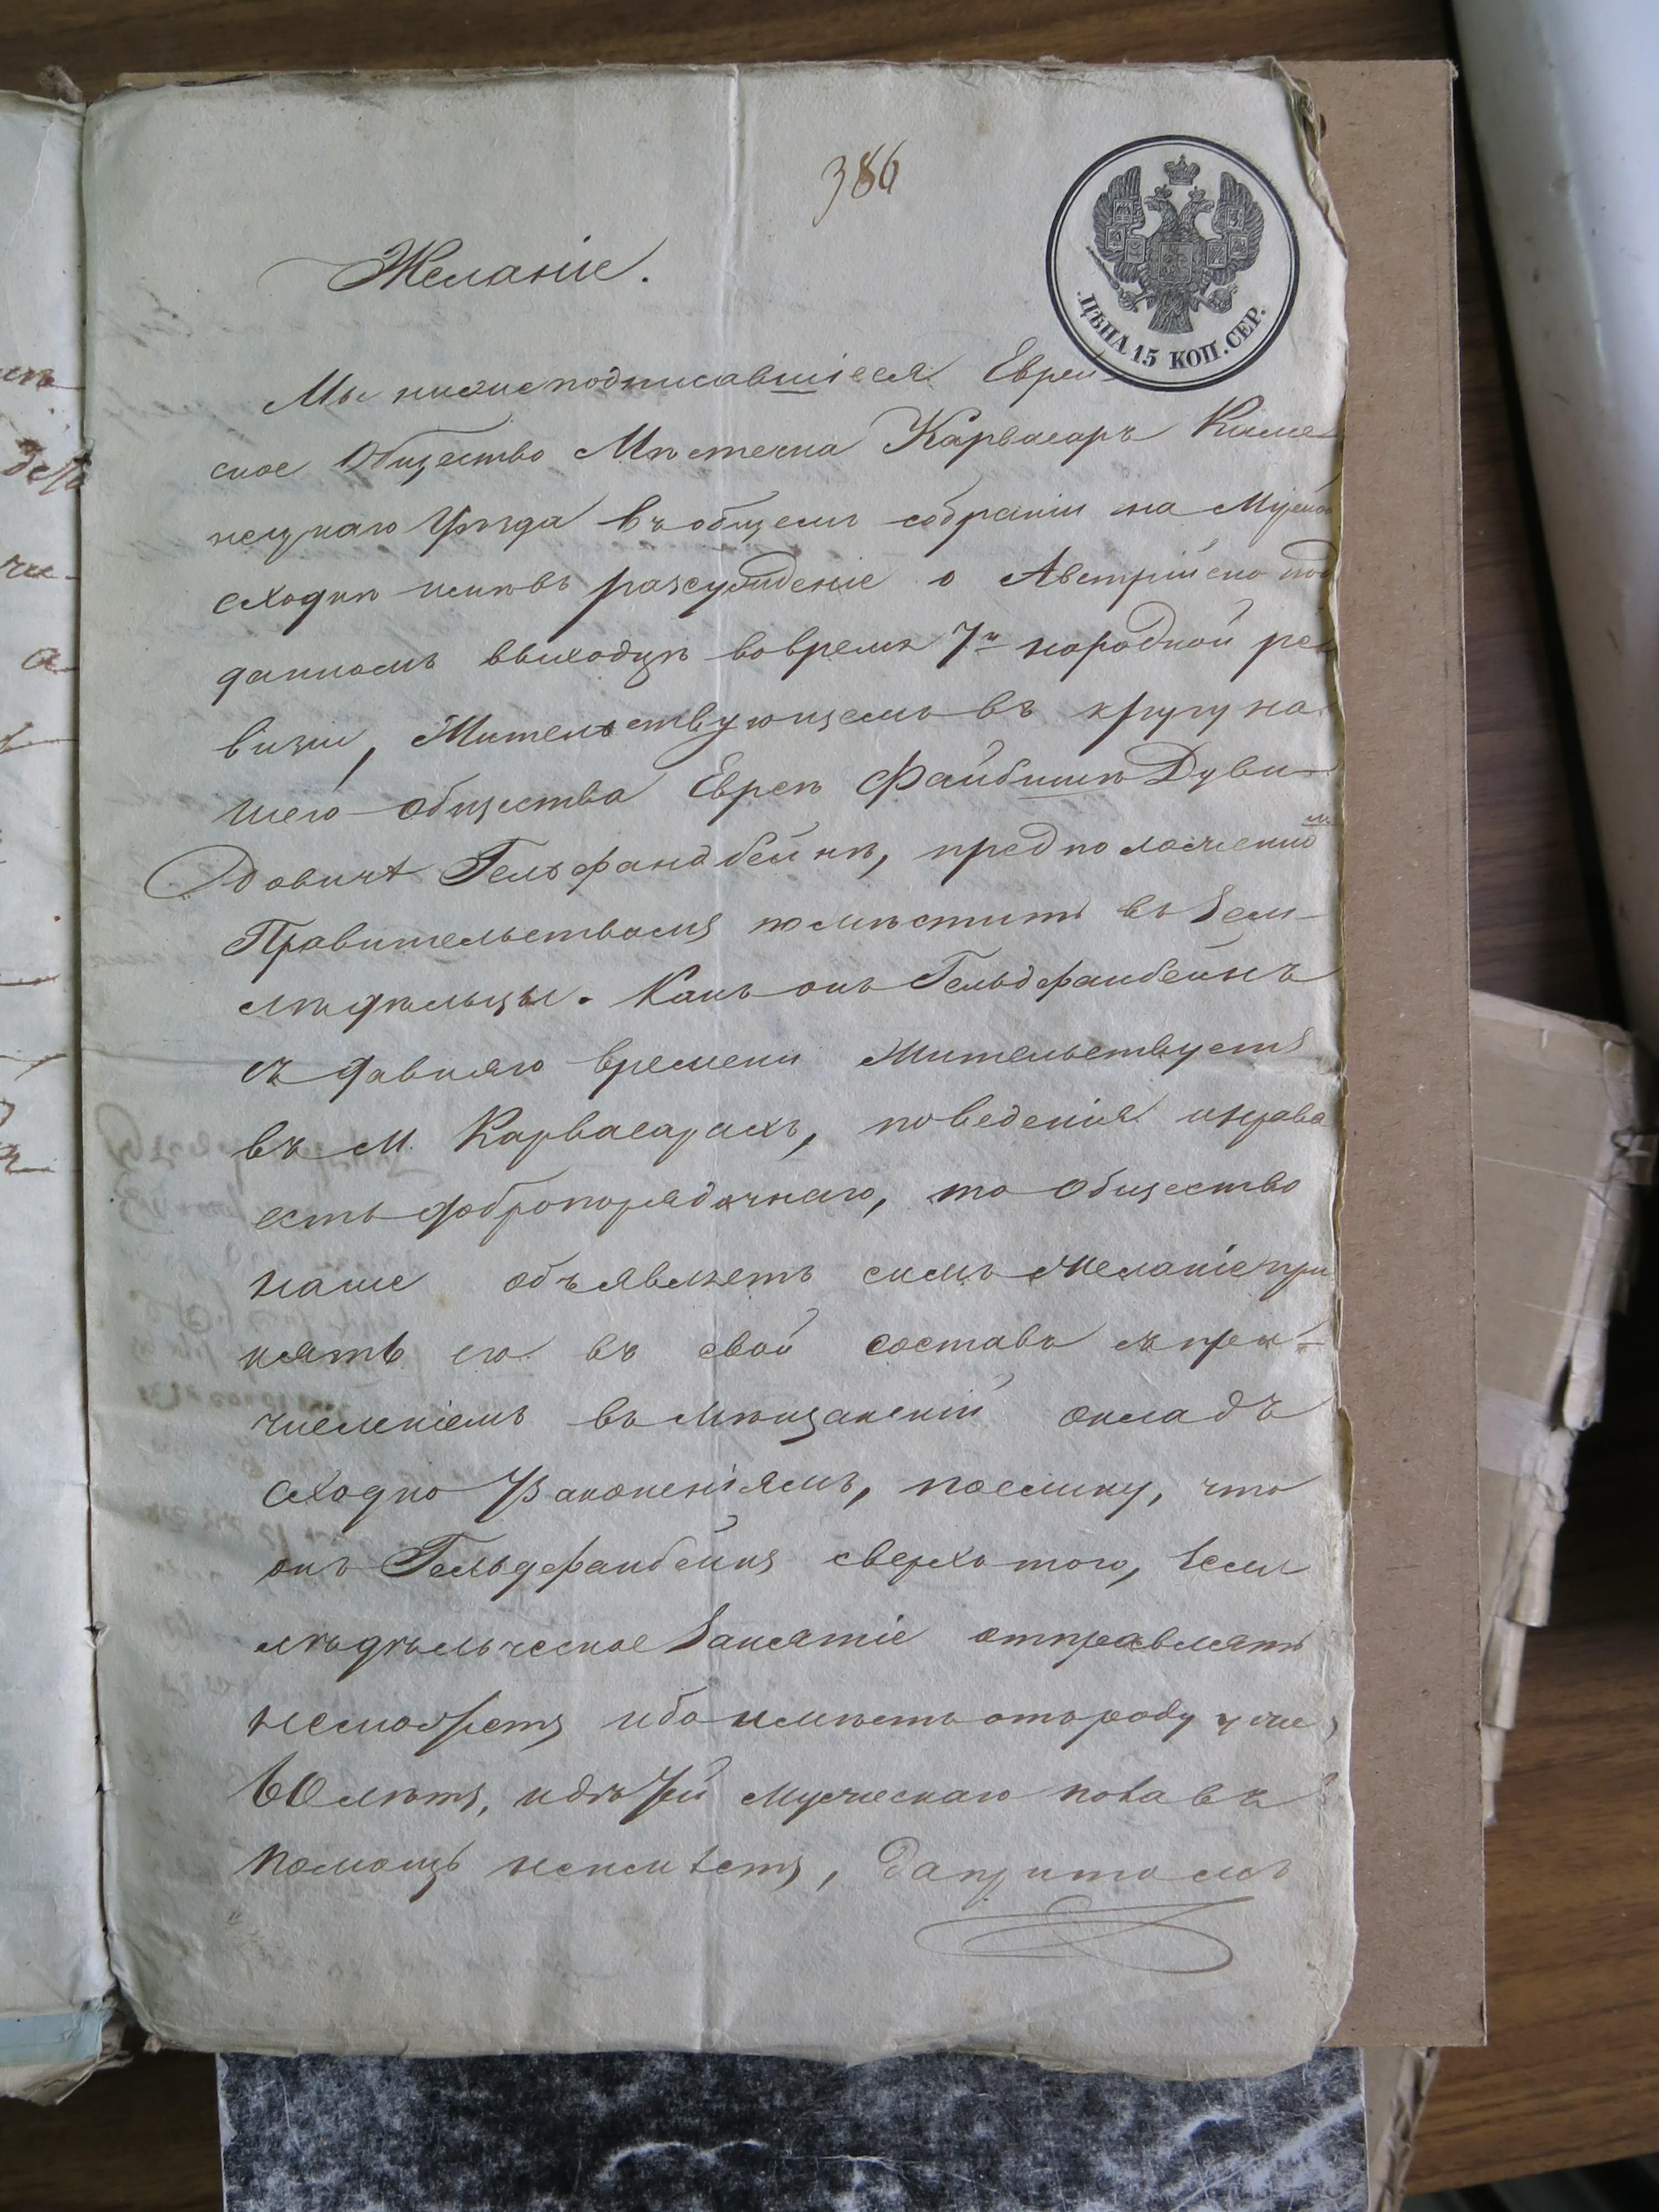 386
ЦѢНА 15 КОП. СЕР.
Желаніе.
Мы нижеподписавшіеся Еврей-
ское Общество Мѣстечка Карвасаръ Каме-
нецкаго Уѣзда въ общемъ собраніи на
сходкѣ имѣвъ разсужденіе о Австрійско под
данномъ выходцѣ вовремя 7й народной ре
визіи, Жительствующемъ въ кругу на
шего общества Еврея Файбиша Дуви-
довича Гельфандбейнѣ, предположенно
Правительствомъ помѣстить въ Зем-
лѣдѣльцы. Какъ онъ Гельдфанбейнъ
съ давняго времени Жительствуетъ
въ М. Карвасарахъ, поведенія и нрава
есть добропорядочнаго, то Общество
наше объявляетъ симъ желаніе при
нять его въ свой составъ съ при-
численіемъ въ Мѣщанскій окладъ
сходно Узаконеніямъ, поелику, что
онъ Гельдфанбейнъ сверхъ того, Зем
лѣдѣльческое Занятіе отправлять
неможетъ ибо имѣетъ отъ роду уже
60 лѣтъ, и дѣтей мужескаго пола въ
помощь неимѣетъ, да притомъ